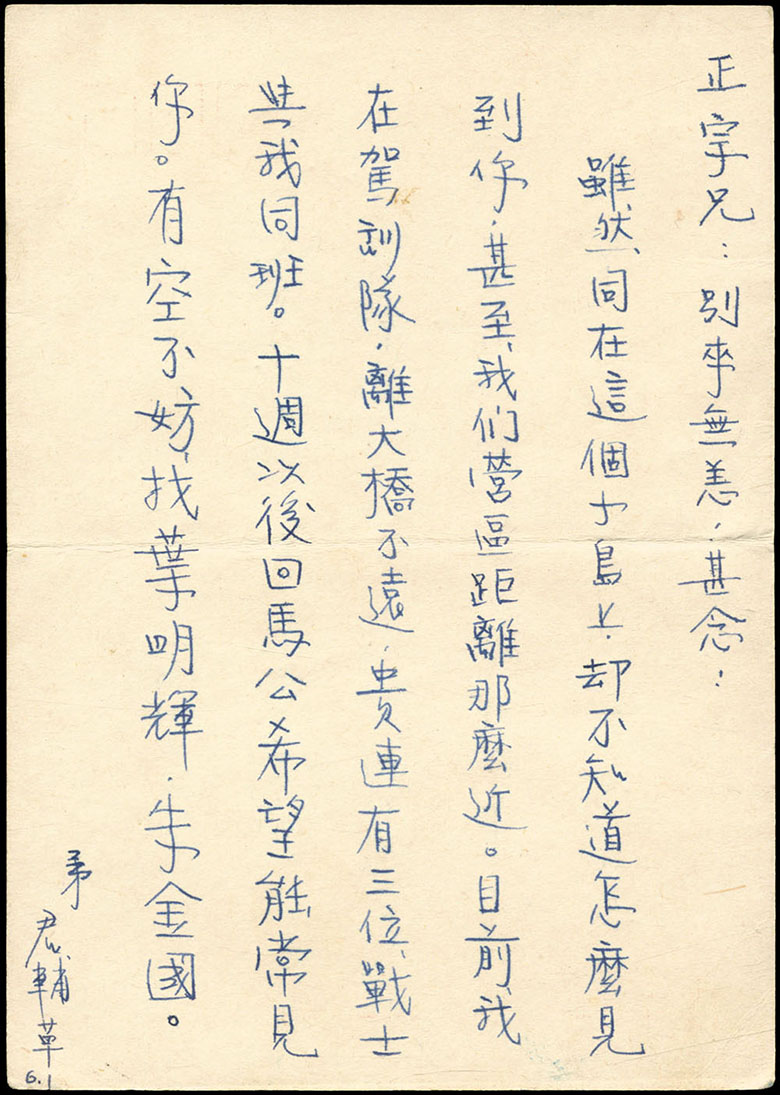 正宇兄：別來無恙．甚念：
雖然同在這個小島上．却不知道怎麼見
到你．甚至我们營區距離那麼近。目前我
在駕訓隊．離大橋不遠．貴連有三位戰士
與我同班。十週以後回馬公希望能常見
你。有空不妨找葉明輝．朱金國。
弟
君輔草
6.1